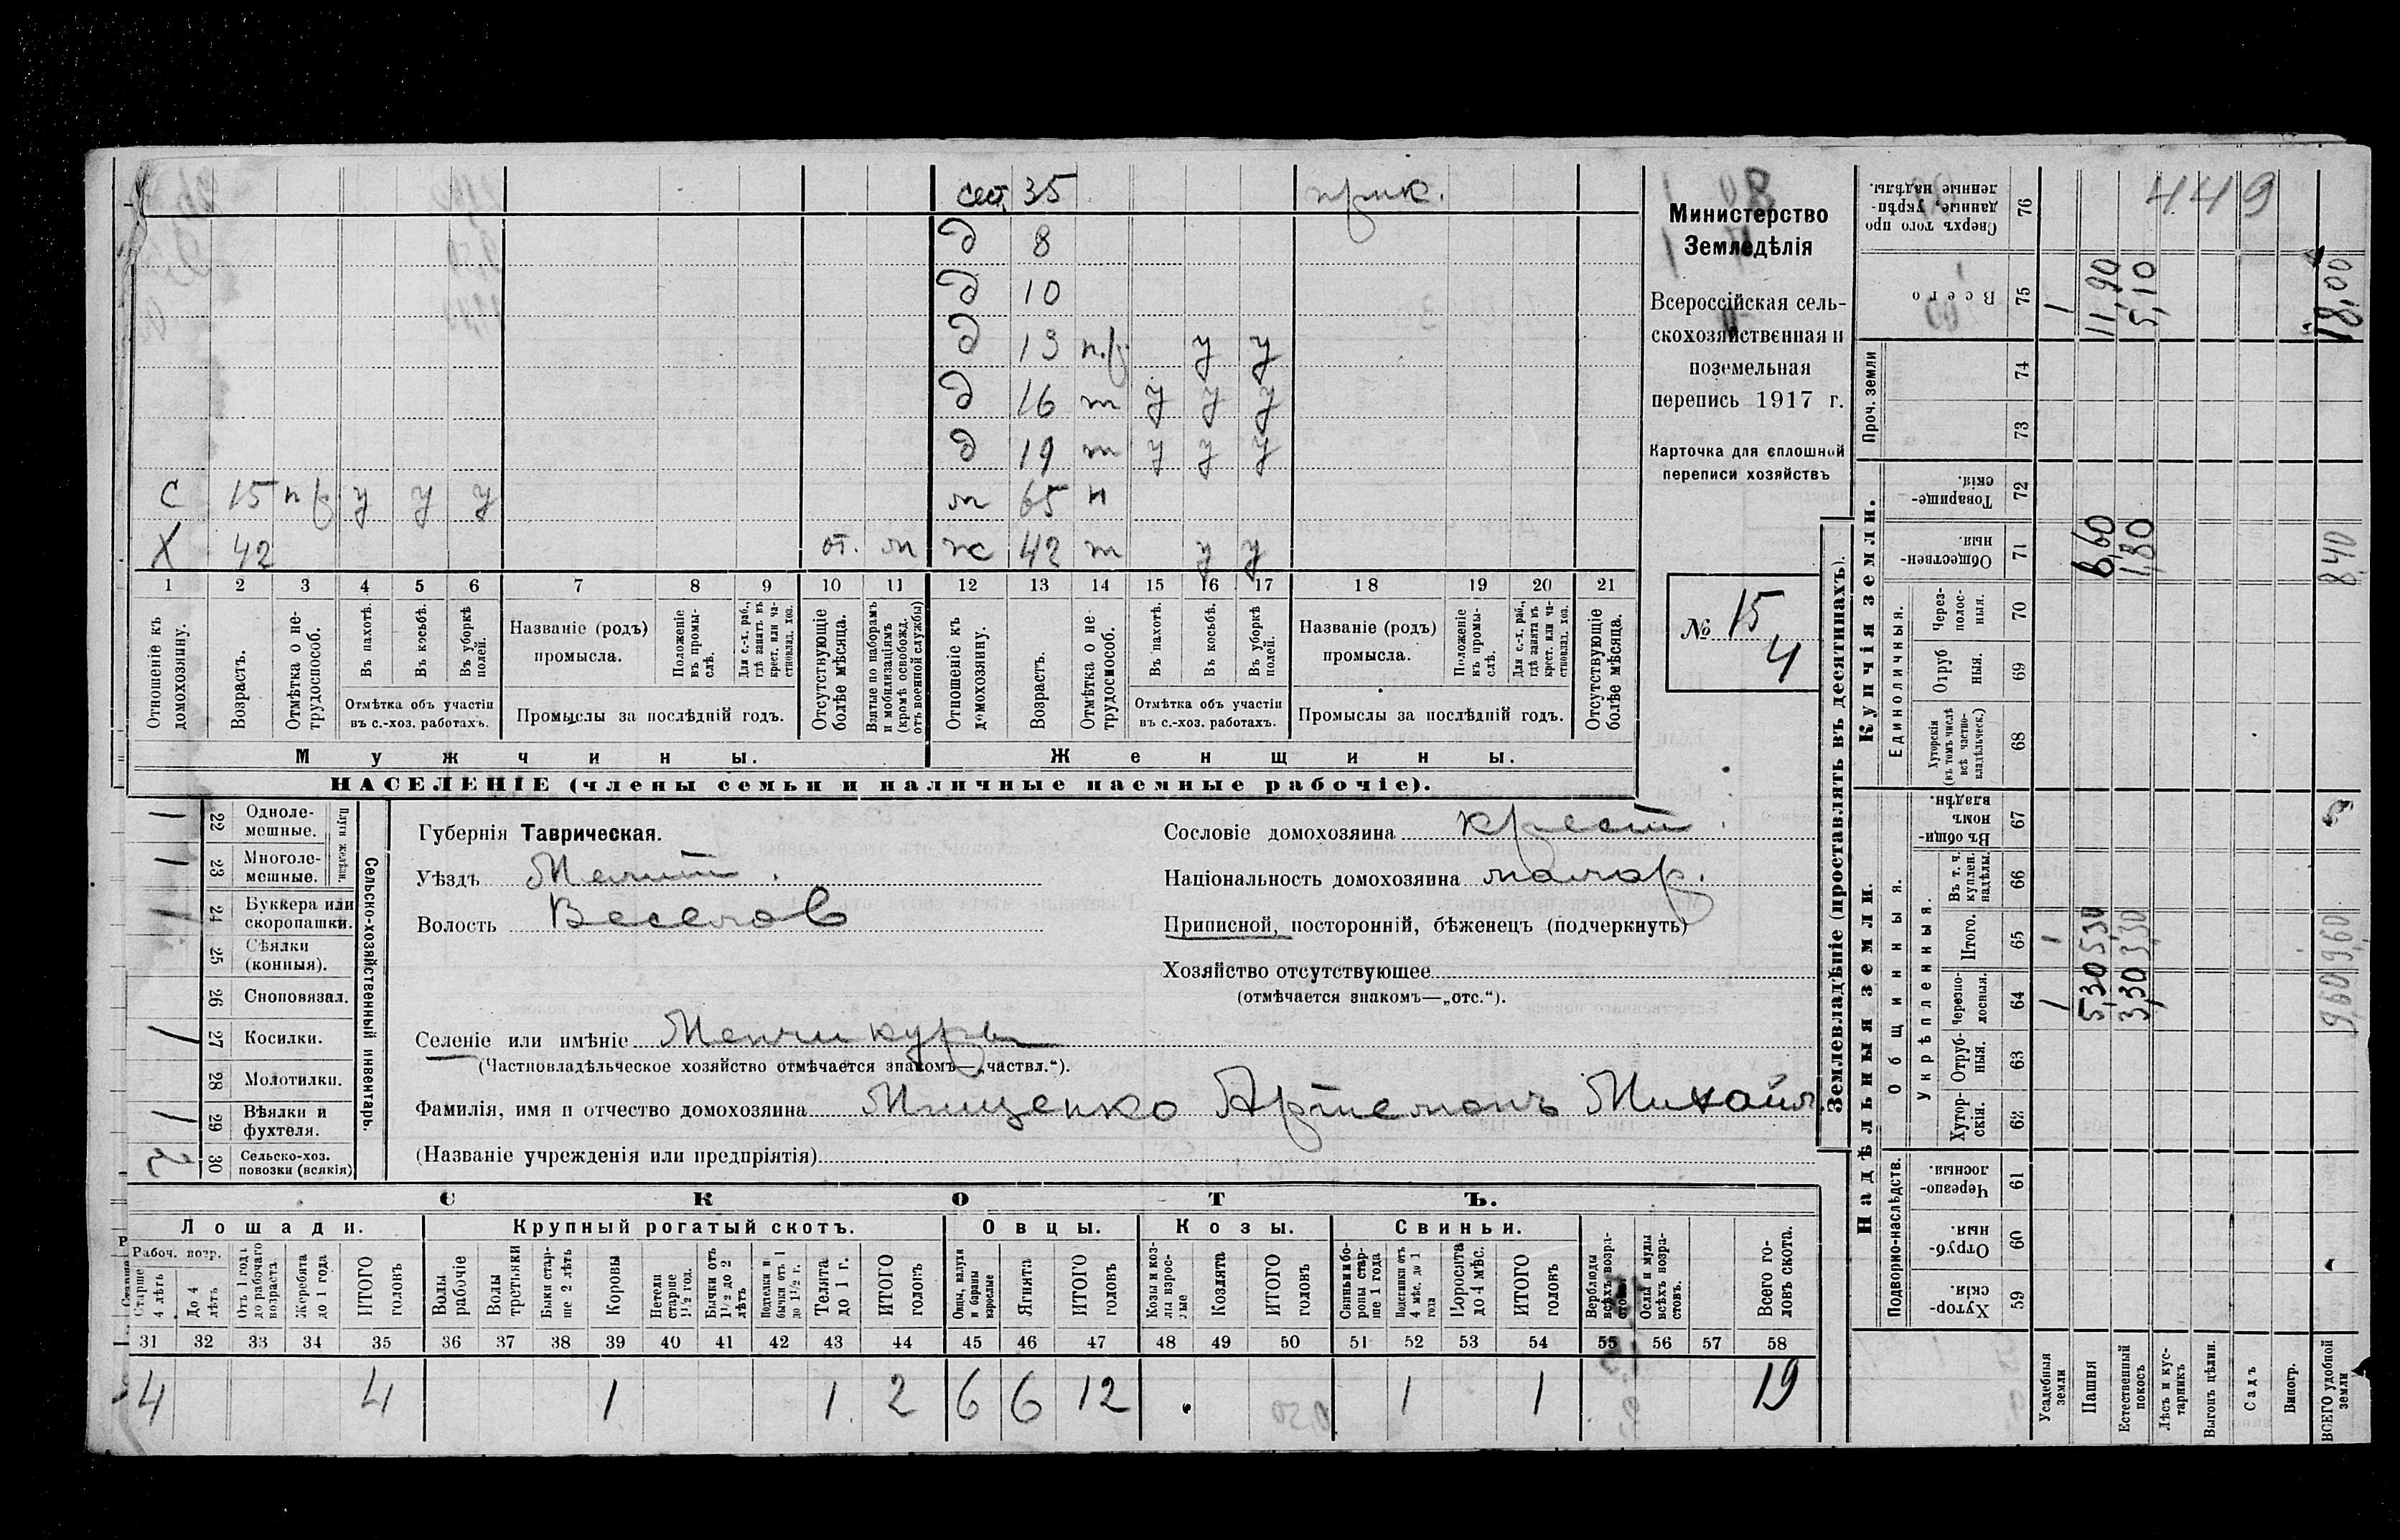 сест. 35 прик.
д 8
д 10
д 13 п.р у у
д 16 т у у у
д 19 т у у у
С 15 п р у у у м 65 н
Х 42 от. м ж 42 т у у
1 2 3 4 5 6 7 8 9 10 11 12 13 14 15 16 17 18 19 20 21
Отношеніе къ домохозяину.
Возрастъ.
Отмѣтка о не-трудоспособ.
Въ пахотѣ.
Въ косьбѣ.
Въ уборкѣ полей.
Отмѣтка объ участіи
въ с.-хоз. работахъ.
Названіе (родъ)
промысла.
Положеніе въ промы-слѣ.
Для с.-х. раб., гдѣ занятъ въ крест. или ча-стновлад. хоз.
Промыслы за послѣдній годъ.
Отсутствующіе болѣе мѣсяца.
Взятые по наборамъ и мобилизаціямъ (кромѣ освобожд. отъ военной службы)
Отношеніе къ домохозяину.
Возрастъ.
Отмѣтка о не-трудоспособ.
Въ пахотѣ.
Въ косьбѣ.
Въ уборкѣ полей.
Отмѣтка объ участіи
въ с.-хоз. работахъ.
Названіе (родъ)
промысла.
Положеніе въ промы-слѣ.
Для с.-х. раб., гдѣ занята въ крест. или ча-стновлад. хоз.
Промыслы за послѣдній годъ.
Отсутствующіе болѣе мѣсяца.
Мужчины. Женщины.
НАСЕЛЕНІЕ (члены семьи и наличные наемные рабочіе).
Министерство
Земледѣлія
Всероссійская сель-
скохозяйственная и
поземельная
перепись 1917 г.
Карточка для сплошной
переписи хозяйствъ
№ 15
4
1 22 Одноле-мешные.
1 23 Многоле-мешные.
Плуги желѣзн.
1 24 Буккера или скоропашки.
25 Сѣялки (конныя).
26 Сноповязал.
1 27 Косилки.
28 Молотилки.
1 29 Вѣялки и фухтеля.
30 Сельско-хоз. повозки (всякія)
Сельско-хозяйственный инвентарь.
Губернія Таврическая.
Уѣздъ Мелит.
Волость Веселов
Сословіе домохозяина крест.
Національность домохозяина малор.
Приписной, посторонній, бѣженецъ (подчеркнуть)
Хозяйство отсутствующее
(отмѣчается знакомъ—„отс.“).
Селеніе или имѣніе Менчикуры
(Частновладѣльческое хозяйство отмѣчается знакомъ—„частвл.“).
Фамилія, имя и отчество домохозяина Мищенко Артемонъ Михайл.
(Названіе учрежденія или предпріятія)
СКОТЪ.
Лошади. Крупный рогатый скотъ. Овцы. Козы. Свиньи.
Рабоч. возр.
Старше 4 лѣтъ
До 4 лѣтъ
Отъ 1 года до рабочаго возраста
Жеребята до 1 года
ИТОГО головъ
Волы рабочіе
Волы третьяки
Быки стар-ше 2 лѣтъ
Коровы
Нетели старше 1½ год.
Бычки отъ 1½ до 2 лѣтъ
Подтелки и бычки отъ 1 до 1½ г.
Телята до 1 г.
ИТОГО головъ
Овцы, валухи и бараны взрослые
Ягнята
ИТОГО головъ
Козы и коз-лы взрос-лые
Козлята
ИТОГО головъ
Свиньи и бо-ровы стар-ше 1 года
Подсвинки отъ 4 мѣс. до 1 года
Поросята до 4 мѣс.
ИТОГО головъ
Верблюды всѣхъ возра-стовъ
Ослы и мулы всѣхъ возра-стовъ.
Всего го-ловъ скота.
31 32 33 34 35 36 37 38 39 40 41 42 43 44 45 46 47 48 49 50 51 52 53 54 55 56 57 58
4 4 1 1 2 6 6 12 1 1 19
Землевладѣніе (проставлять въ десятинахъ).
449
Сверхъ того про данные, укрѣп-ленные надѣлы. 76
Всего 75 1 11,90 5,10 18,00
Проч. земли 74
73
Купчія земли.
Товарище-скія. 72
Обществен-ныя. 71 6,60 1,80 8,40
Единоличныя.
Через-полос-ныя. 70
Отруб ныя. 69
Хуторскія (въ томъ числѣ всѣ частно-владѣльческ.) 68
Надѣльныя земли.
Общинныя.
Въ общин-номъ владѣн. 67
Укрѣпленныя.
Въ т. ч. куплен. надѣлы. 66
Итого. 65 1 5,30 3,30 9,60
Черезпо-лосныя. 64 1 5,30 3,30 9,60
Отруб-ныя. 63
Хутор-скія. 62
Подворно-наслѣдств.
Черезпо-лосныя. 61
Отруб-ныя. 60
Хутор-скія. 59
Усадебныя земли
Пашня
Естественный покосъ
Лѣсъ и кус-тарникъ
Выгонъ цѣлин.
Садъ
Виногр.
ВСЕГО удобной земли